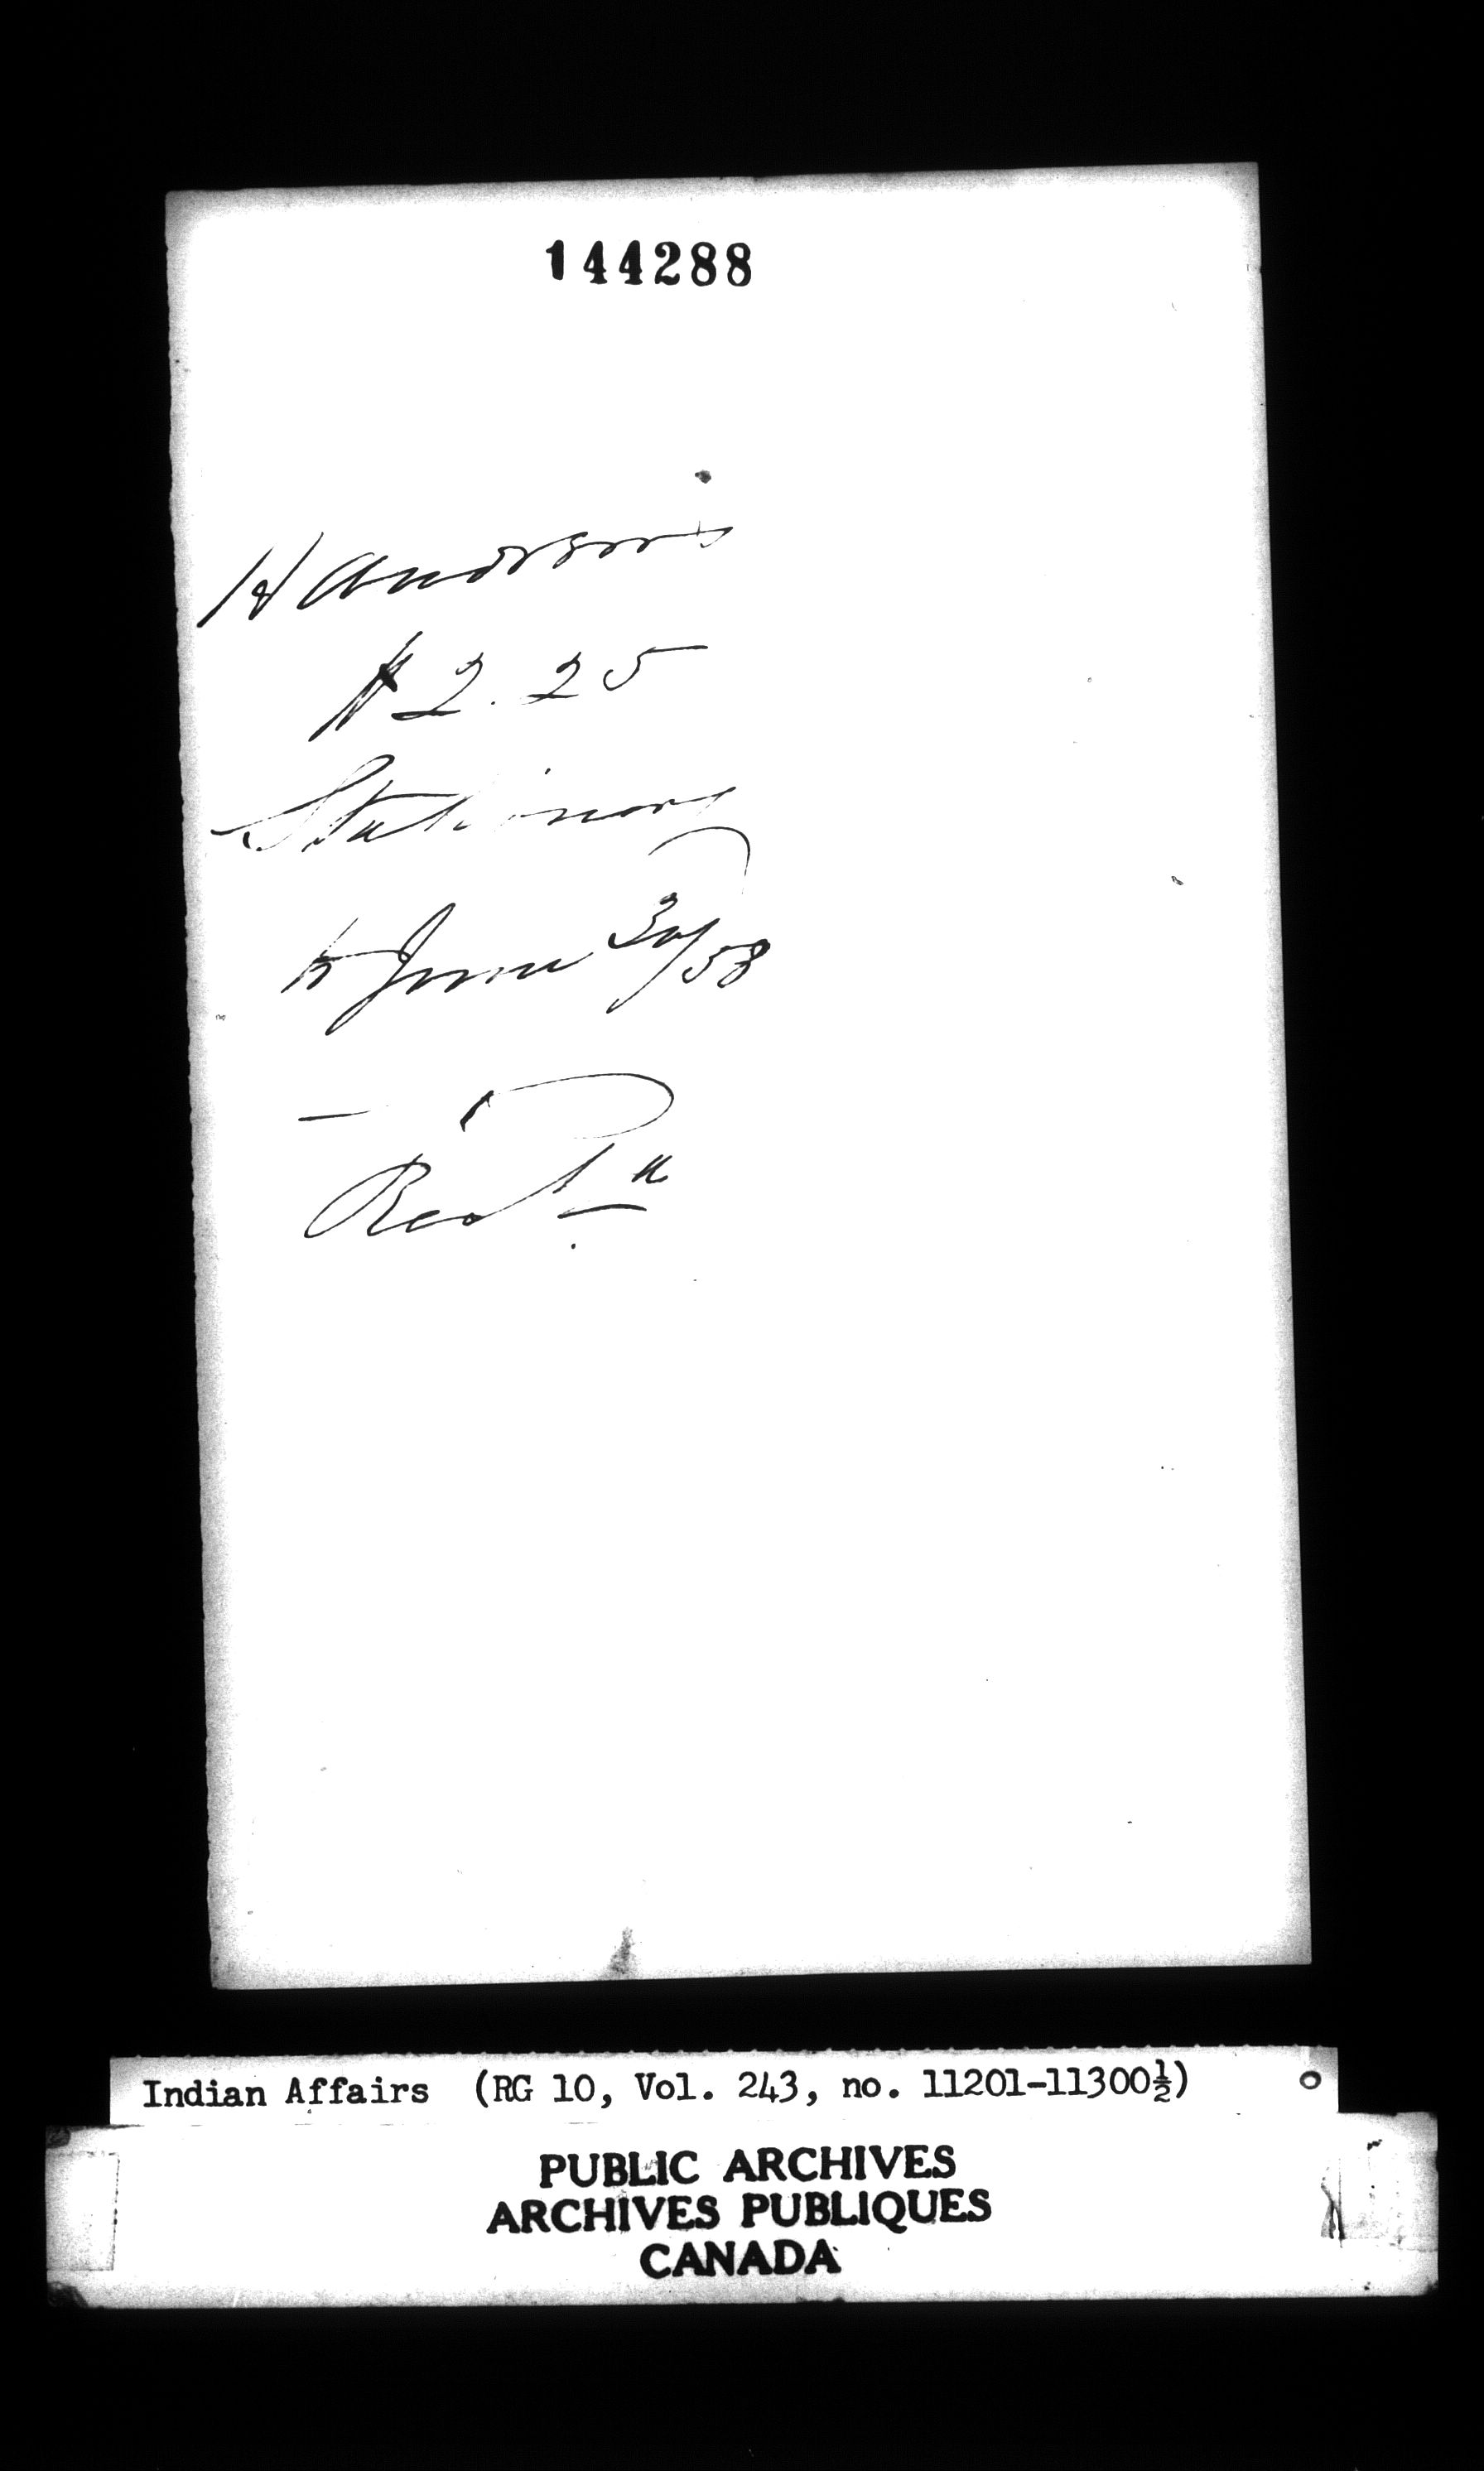 144288
H Anderson's
$2.25
Stationery
to June 30/58
Indian Affairs (RG 10, Vol. 243, no. 11201-11300½)
PUBLIC ARCHIVES
ARCHIVES PUBLIQUES
CANADA